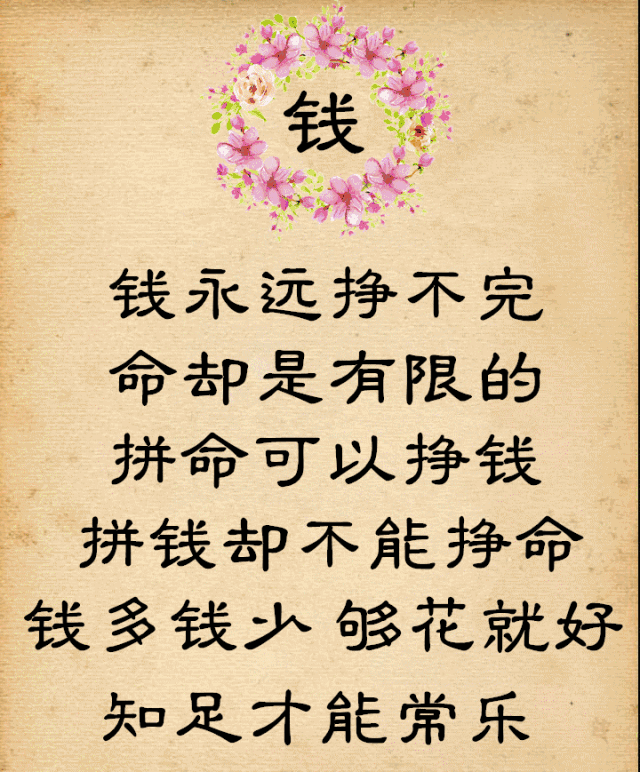 钱
钱永远挣不完
命却是有限的
拼命可以挣钱
拼钱却不能挣命
钱多钱少 够花就好
知足才能常乐